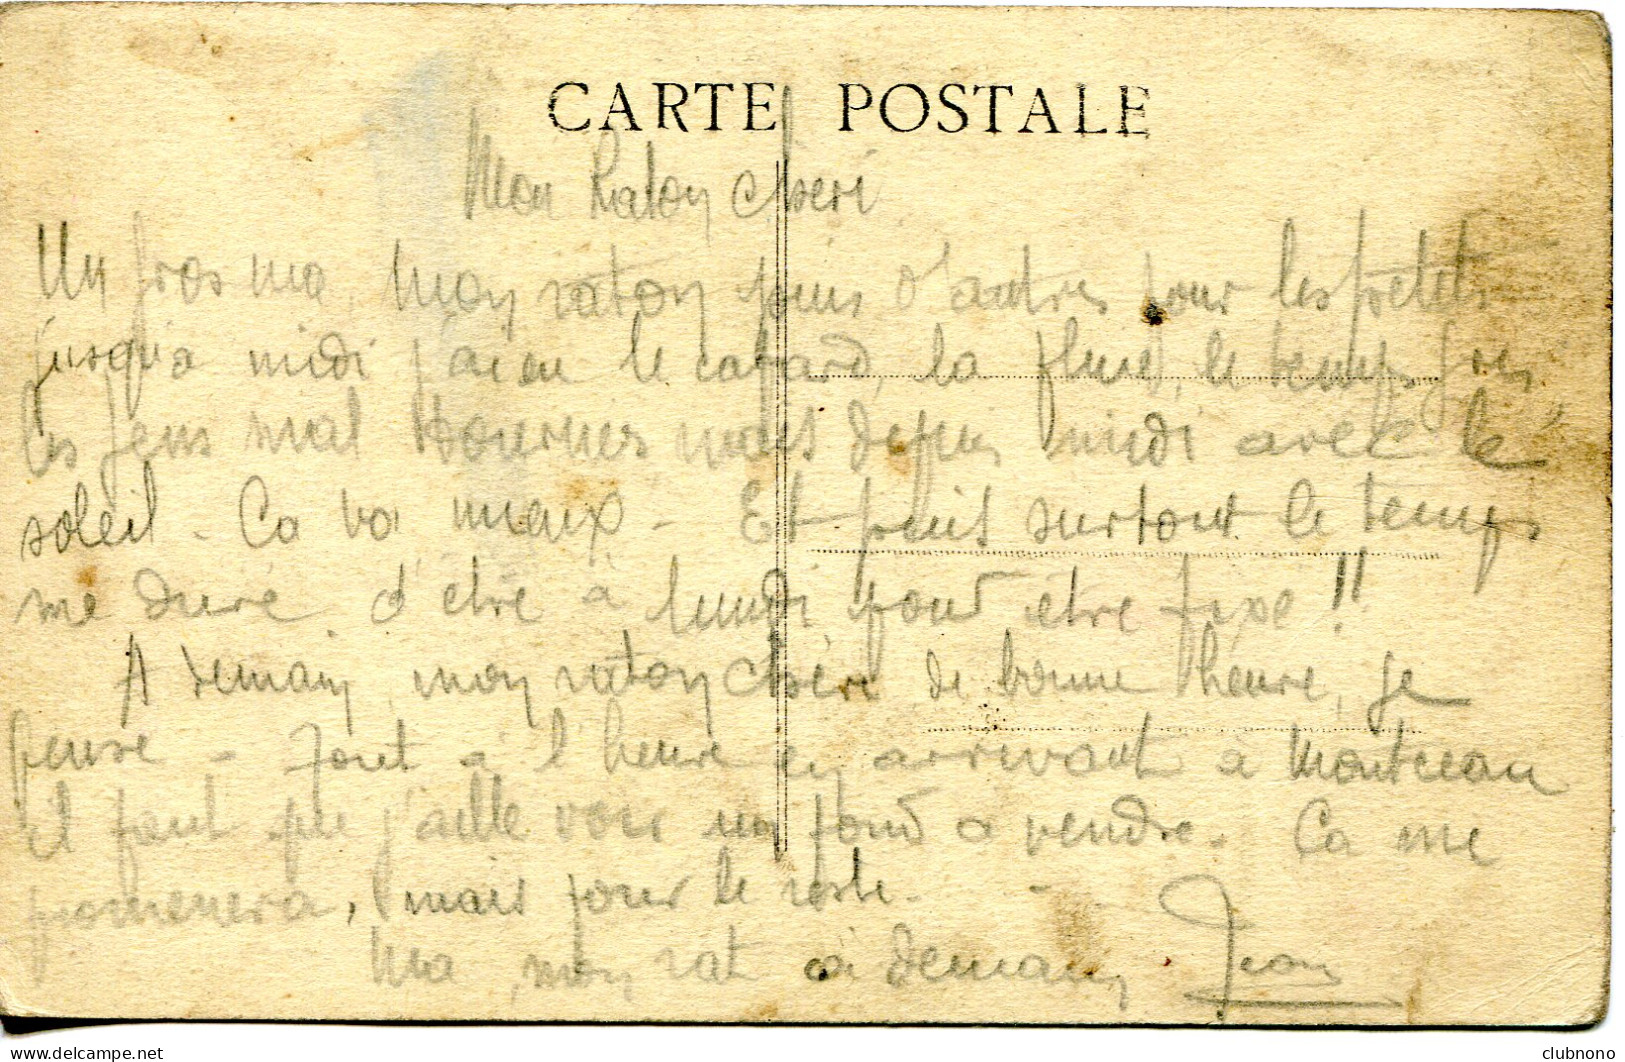 CARTE POSTALE
Mon Raton cheri
Un gros ma, mon raton puis d'autres pour les petits
jusqu'a midi j'ai eu le cafard, la pluie, le temps gris
les gens mal tournes mais depuis midi avec le
soleil - Ca va mieux - Et puis surtout le temps
me dure d'etre à lundi pour être fixe !!
A demain mon raton chéri de bonne heure, je
pense - Tout à l'heure en arrivant à Montceau
il faut que j'aille voir un fond a vendre. Ca me
promenera, mais pour le reste. -
Ma, mon rat à demain Jean
delcampe.net
clubnono